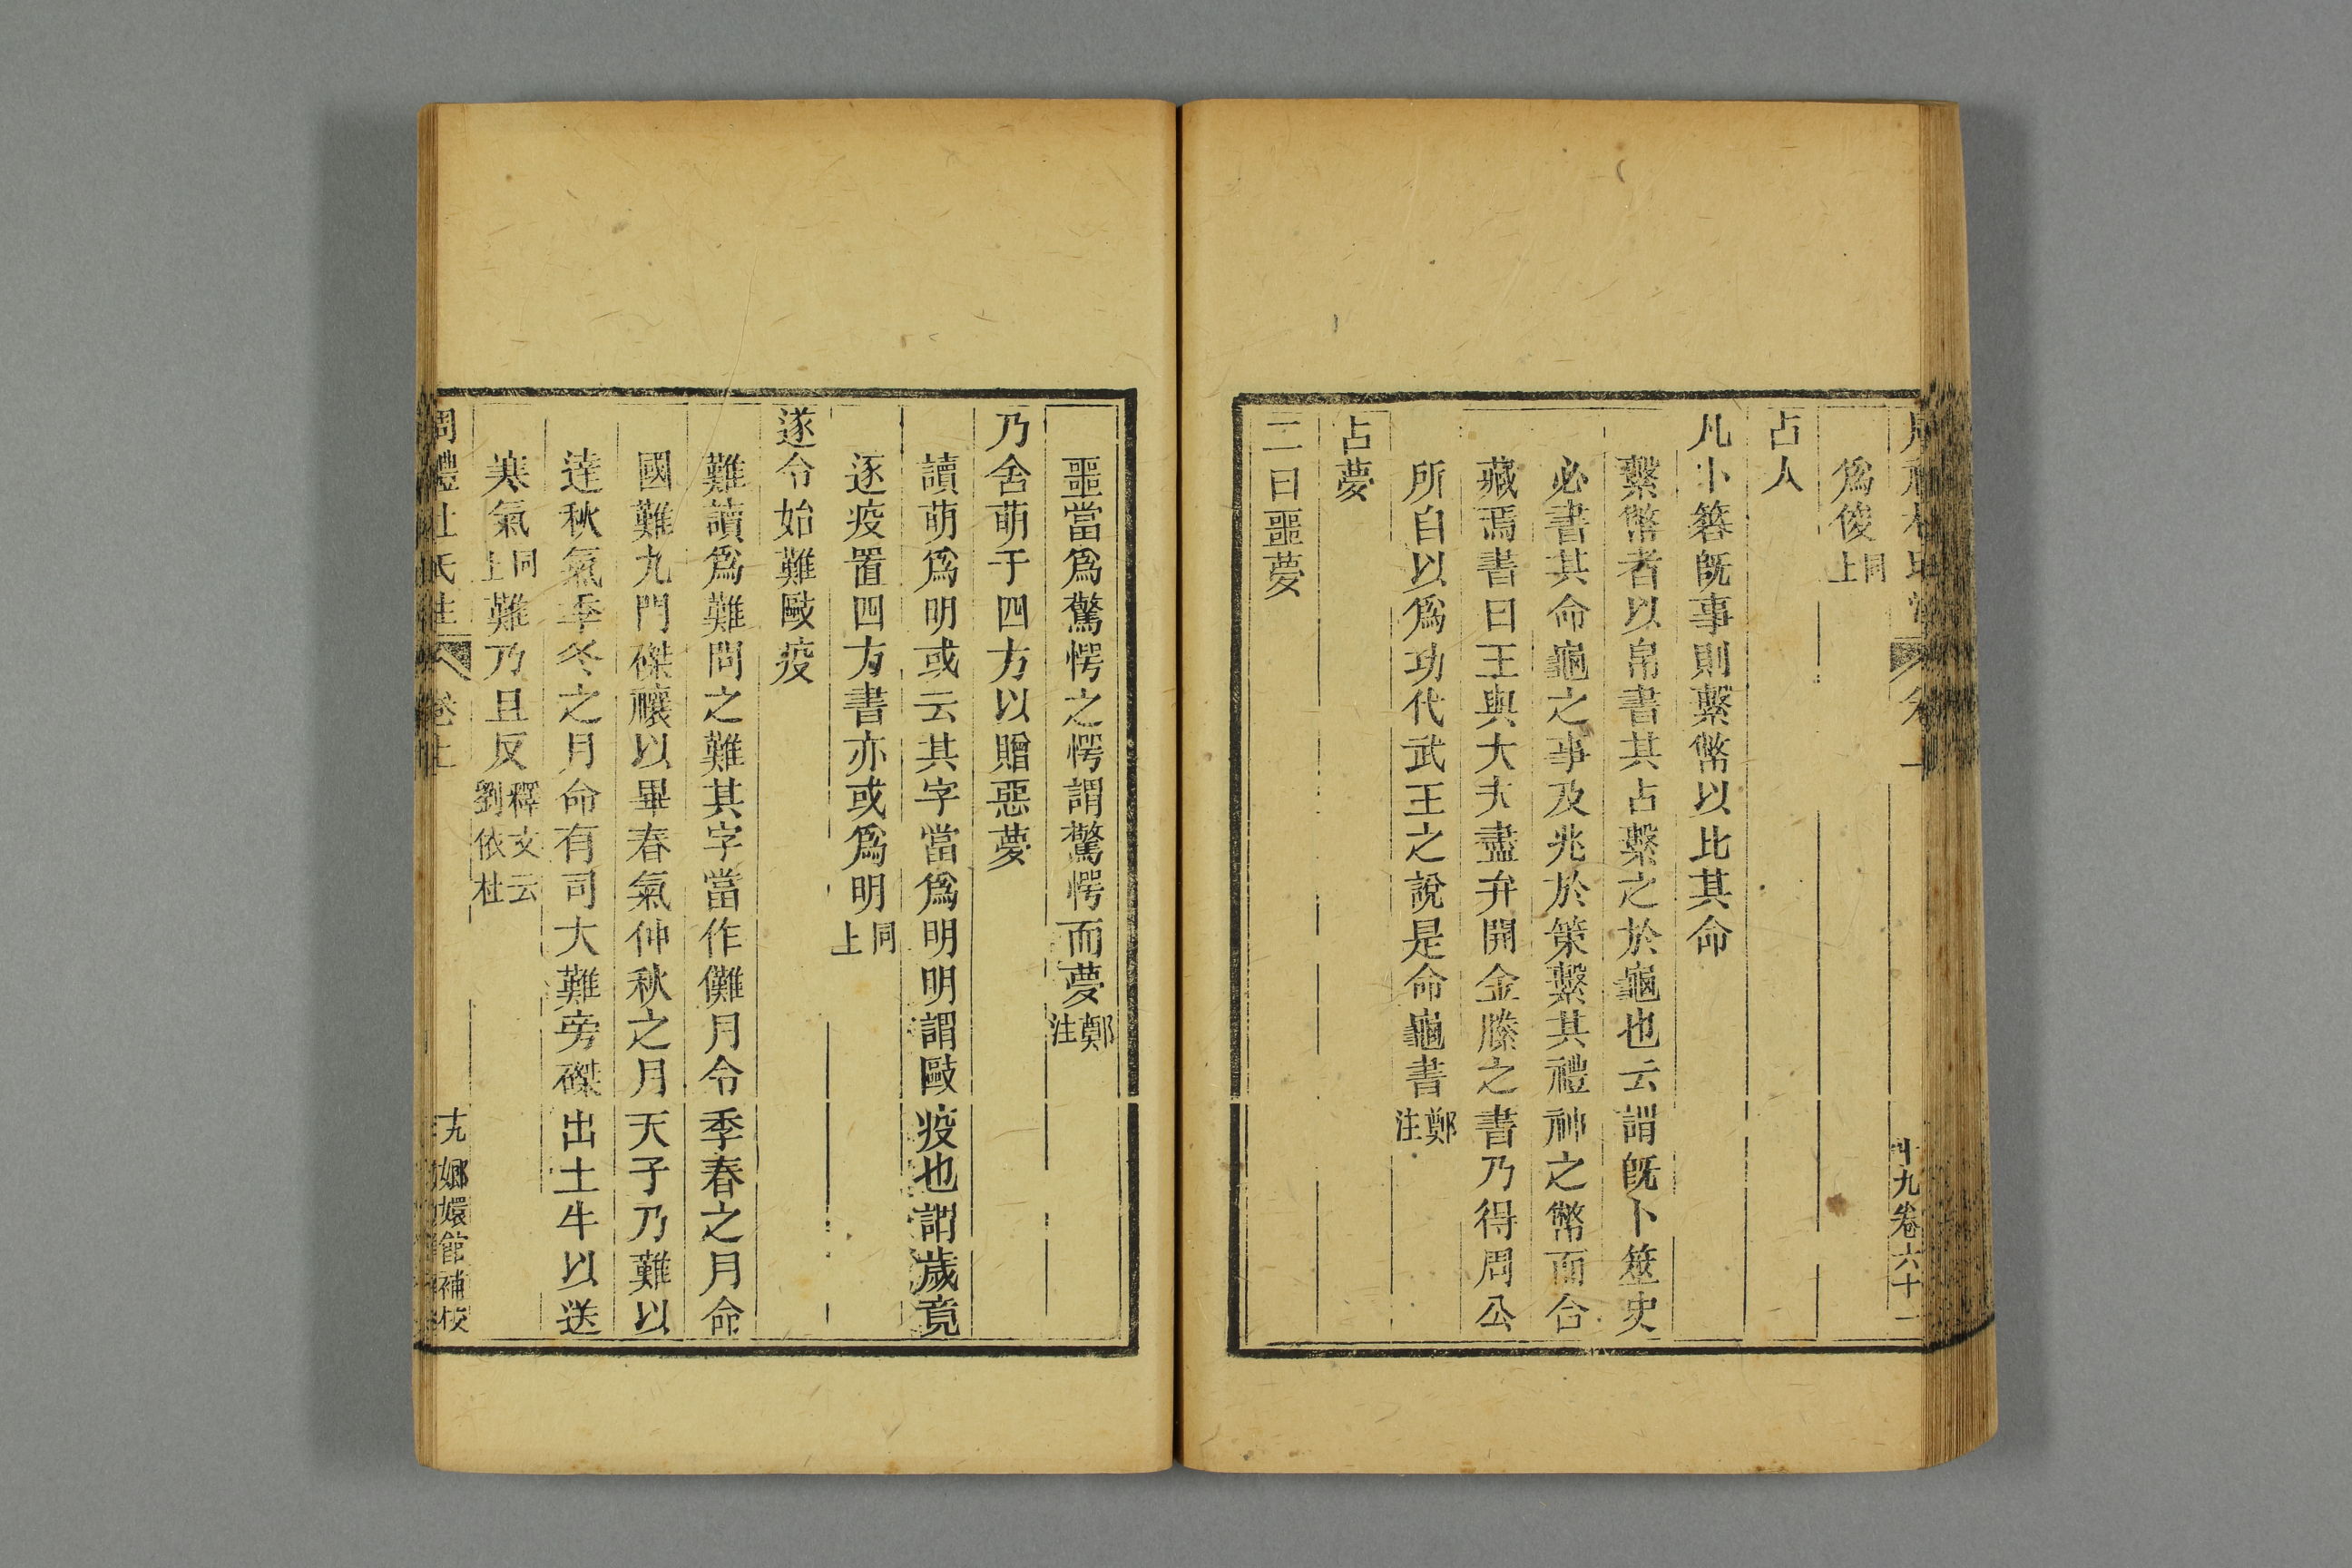 爲俊同上
占人
凡卜簭旣事則繫幣以比其命
繫幣者以帛書其占繫之於龜也云謂旣卜筮史
必書其命龜之事及兆於策繫其禮神之幣而合
藏焉書曰王與大夫盡弁開金縢之書乃得周公
所自以爲功代武王之說是命龜書鄭注
占夢
二曰噩夢
噩當爲驚愕之愕謂驚愕而夢鄭注
乃舍萌于四方以贈惡夢
讀萌爲明或云其字當爲明明謂毆疫也謂歲竟
逐疫置四方書亦或爲明同上
遂令始難毆疫
難讀爲難問之難其字當作儺月令季春之月命
國難九門磔禳以畢春氣仲秋之月天子乃難以
達秋氣季冬之月命有司大難旁磔出土牛以送
寒氣同上難乃且反釋文云劉依杜
周禮杜氏注 卷上 十九 嫏嬛館補校